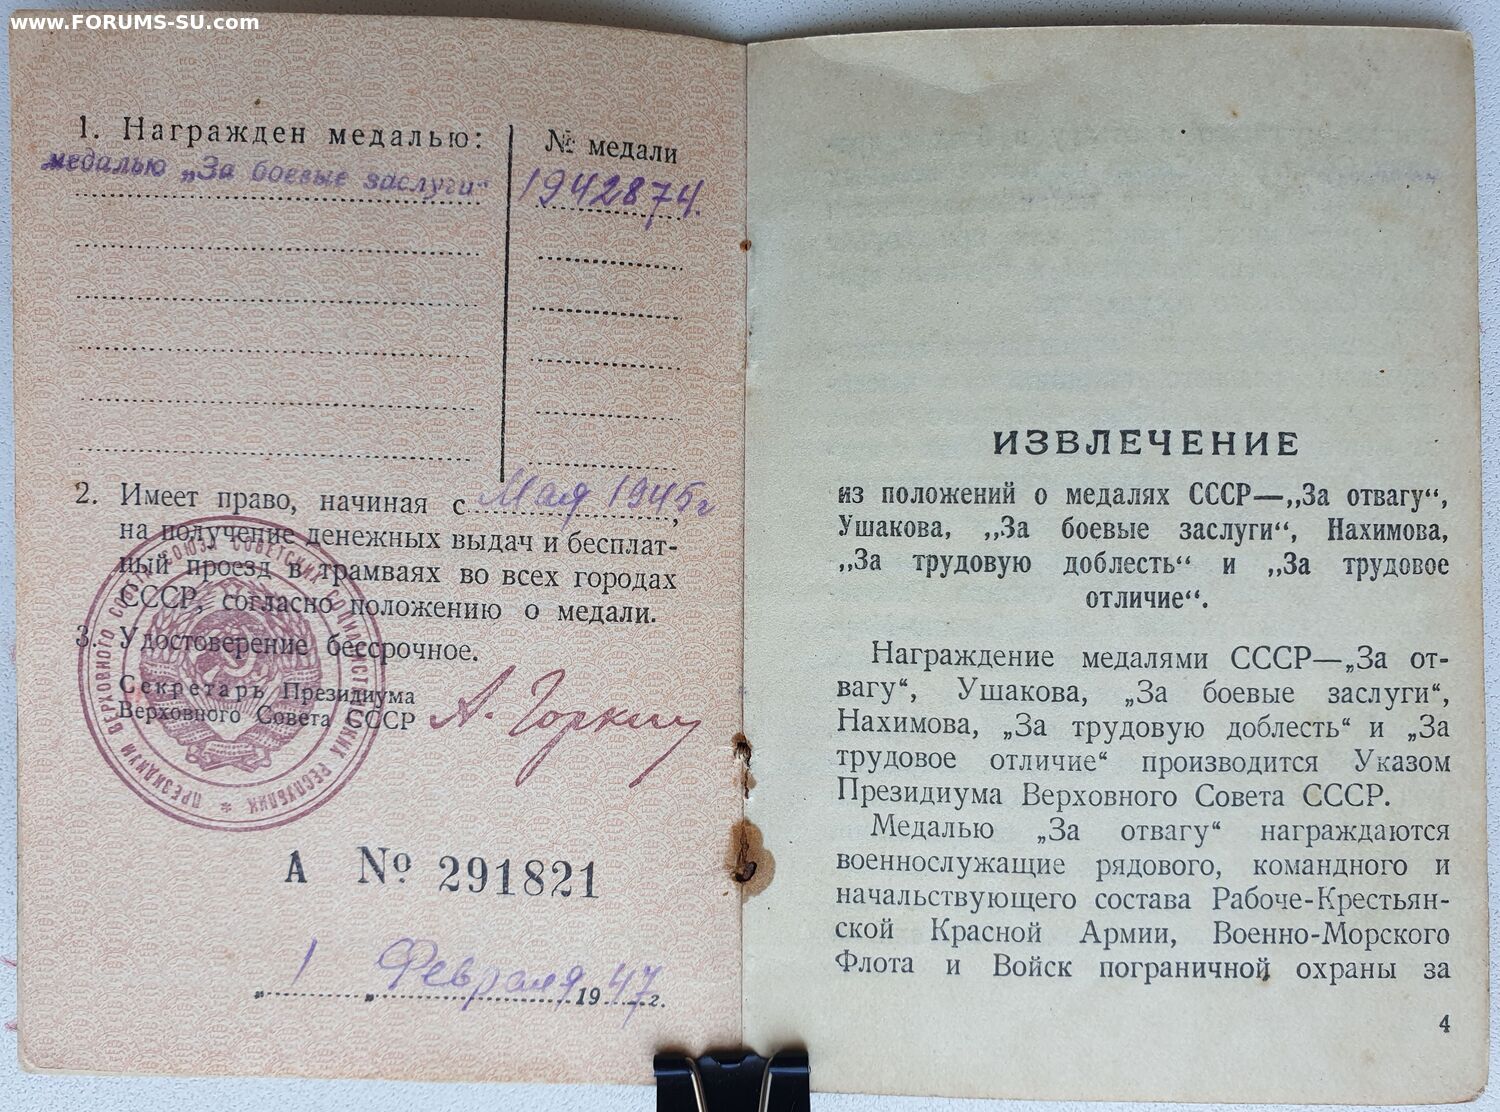 www.FORUMS-SU.com
1. Награжден медалью:
№ медали
медалью „За боевые заслуги“
1942874.
2. Имеет право, начиная с Мая 1945г,
на получение денежных выдач и бесплат-
ный проезд в трамваях во всех городах
СССР, согласно положению о медали.
3. Удостоверение бессрочное.
Секретарь Президиума
Верховного Совета СССР
А. Горкин
ПРЕЗИДИУМ ВЕРХОВНОГО СОВЕТА СОЮЗА СОВЕТСКИХ СОЦИАЛИСТИЧЕСКИХ РЕСПУБЛИК *
А № 291821
„ 1 „ Февраля 1947 г.
ИЗВЛЕЧЕНИЕ
из положений о медалях СССР—„За отвагу“,
Ушакова, „За боевые заслуги“, Нахимова,
„За трудовую доблесть“ и „За трудовое
отличие“.
Награждение медалями СССР—„За от-
вагу“, Ушакова, „За боевые заслуги“,
Нахимова, „За трудовую доблесть“ и „За
трудовое отличие“ производится Указом
Президиума Верховного Совета СССР.
Медалью „За отвагу“ награждаются
военнослужащие рядового, командного и
начальствующего состава Рабоче-Крестьян-
ской Красной Армии, Военно-Морского
Флота и Войск пограничной охраны за
4